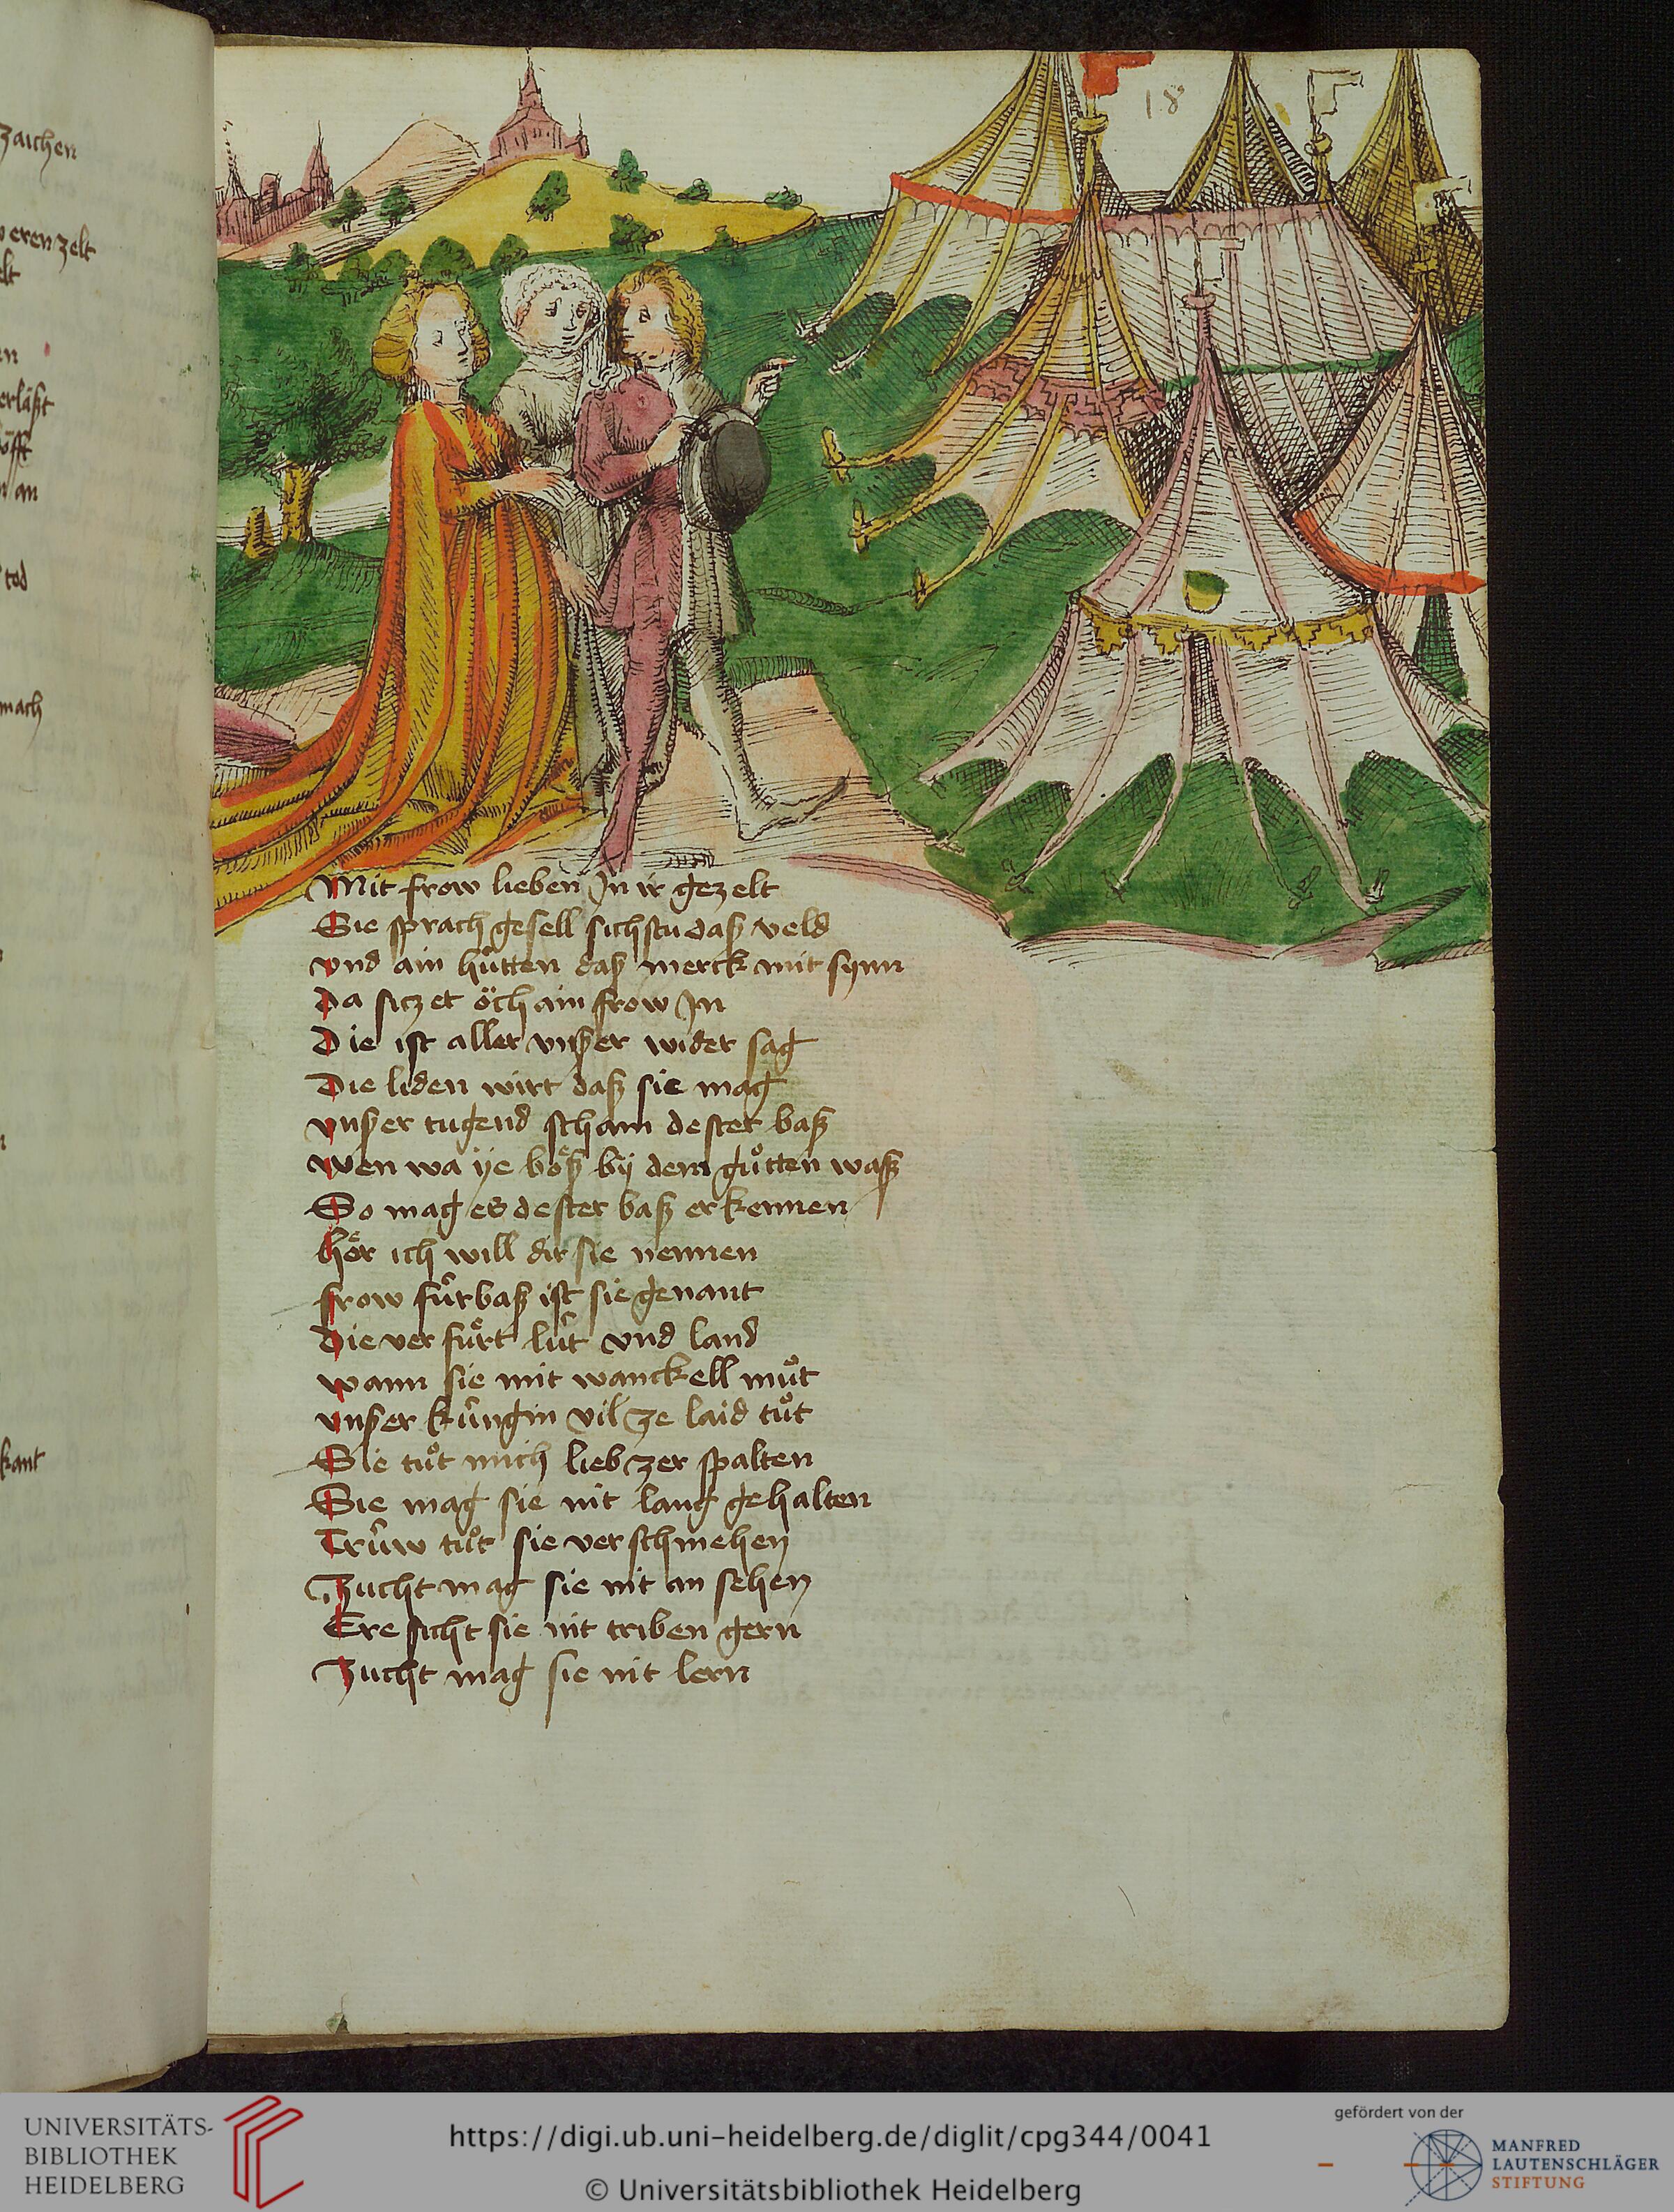 zaichen
eren zelt
elt
en
erläßt
öfft
n an
tod
mach
kant
18
Mit frow lieben In ir gezelt
Sie sprach gesell sichstu daß veld
vnd ain hütten daß merck mit synn
da siczet öch ain frow In
Die ist aller vnßer wider sag
Die liden wirt daß sie mag
vnßer tugend scham dester baß
wen wa ÿe böß bÿ dem guͦtten waß
So mag es dester baß erkennen
hör ich will dir sie nennen
frow fürbaß ist sie genant
die verfürt lüt vnd land
wann sie mit wanckell muͦt
vnßer küngin vil ze laid tuͦt
Sie tuͦt mich lieb zer spalten
Sie mag sie nit lang gehalten
Trüw tuͦt sie verschmehen
Zucht mag sie nit an sehen
Ere sicht sie nit triben gern
Zucht mag sie nit lern
UNIVERSITÄTS-
BIBLIOTHEK
HEIDELBERG
https://digi.ub.uni-heidelberg.de/diglit/cpg344/0041
© Universitätsbibliothek Heidelberg
gefördert von der
MANFRED
LAUTENSCHLÄGER
STIFTUNG